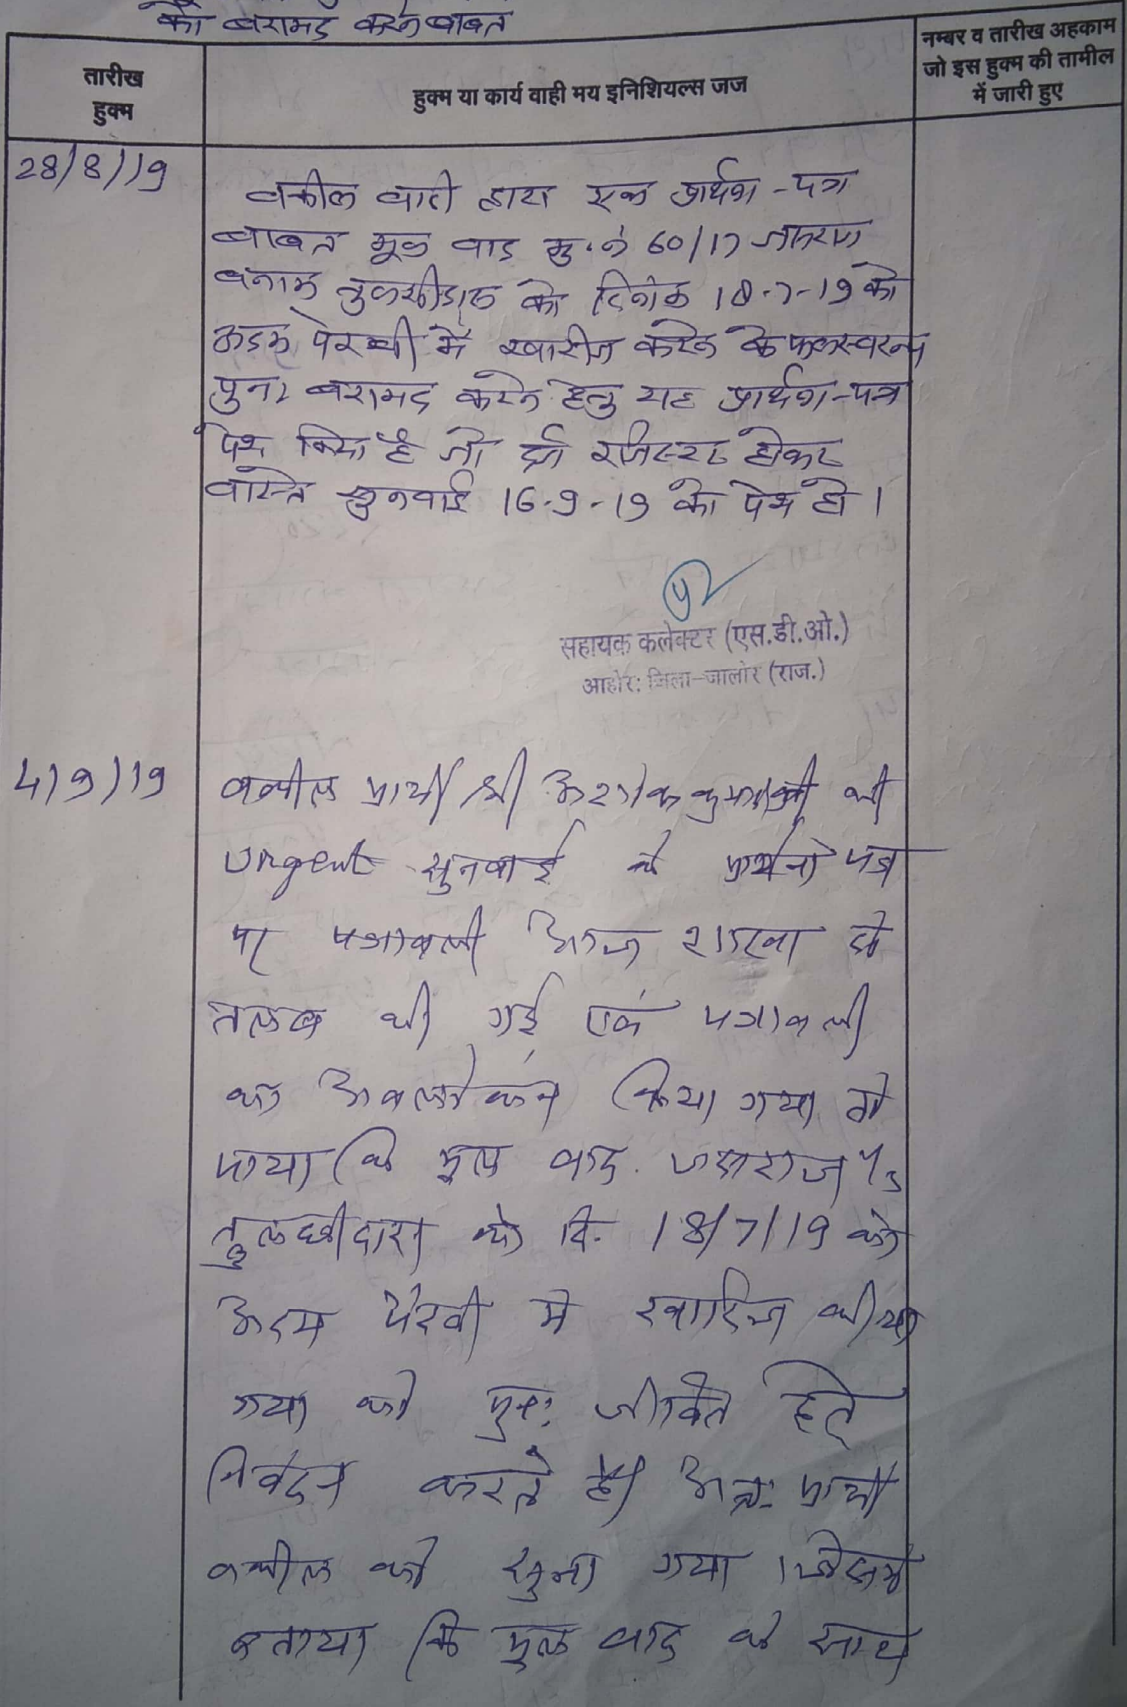 को बरामद करने बाबत
तारीख
हुक्म
हुक्म या कार्य वाही मय इनिशियल्स जज
नम्बर व तारीख अहकाम
जो इस हुक्म की तामील
में जारी हुए
28/8/19
वकील वादी द्वारा एक प्रार्थना-पत्र
बाबत मूल वाद मु.नं 60/17 जसराज
बनाम तुलसीदास को दिनांक 18-7-19 को
अदम पेरवी में खारीज करने के फलस्वरूप
पुनः बरामद करने हेतु यह प्रार्थना-पत्र
पेश किया है जो दर्ज रजिस्टर होकर
वास्ते सुनवाई 16-9-19 को पेश हो ।
सहायक कलेक्टर (एस.डी.ओ.)
आहोर: जिला-जालोर (राज.)
4/9/19
वकील प्रार्थी श्री अशोक कुमार की
Urgent सुनवाई के प्रार्थना पत्र
पर पत्रावली आज शाखा से
तलब की गई एवं पत्रावली
का अवलोकन किया गया तो
पाया कि मूल वाद जसराज v/s
तुलछीदास को दि. 18/7/19 को
अदम पैरवी मे खारिज कीया
गया को पुनः जीवित हेतु
निवेदन करते है। अतः प्रार्थी
वकील को सुना गया । जिसमे
बताया कि मूल वाद के साथ